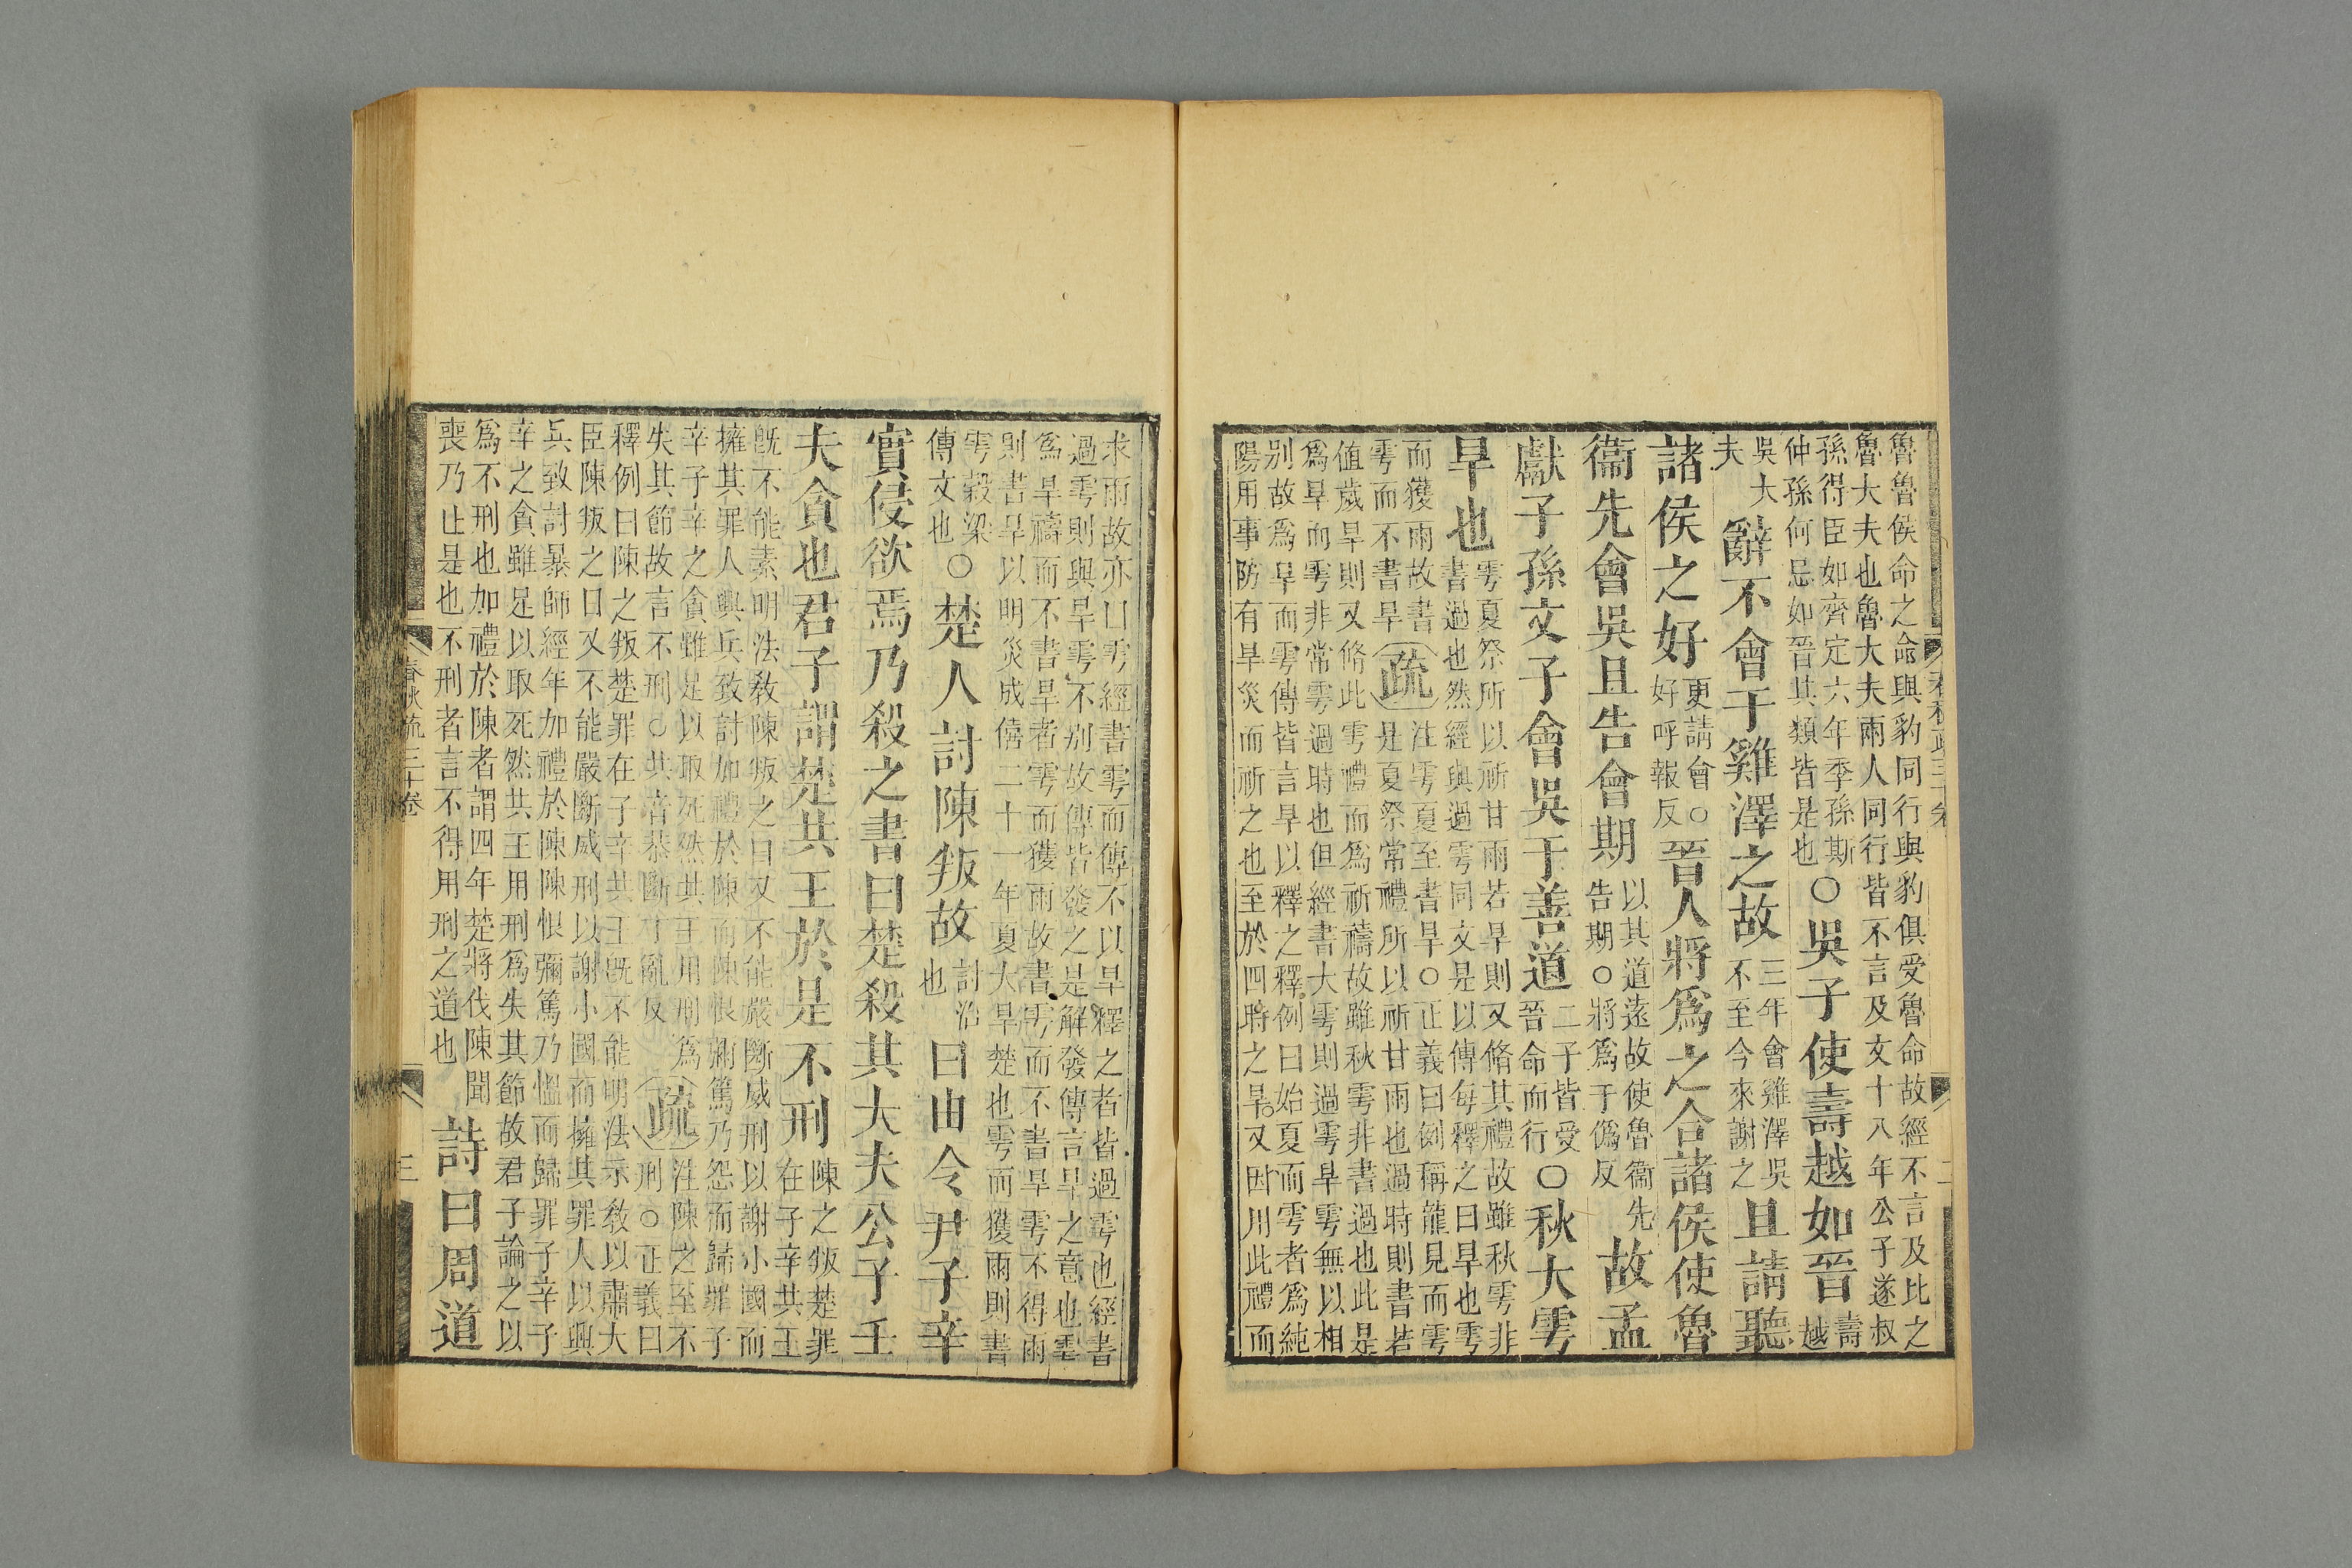 魯魯侯命之命與豹同行與豹俱受魯命故經不言及比之
魯大夫也魯大夫兩人同行皆不言及文十八年公子遂叔
孫得臣如齊定六年季孫斯
仲孫何忌如晉其類皆是也
○吳子使壽越如晉
壽
越
吳大
夫
辭不會于雞澤之故
三年會雞澤吳
不至今來謝之
且請聽
諸侯之好
更請會○
好呼報反
晉人將爲之合諸侯使魯
衞先會吳且告會期
以其道遠故使魯衞先
告期○將爲于僞反
故孟
獻子孫文子會吳于善道
二子皆受
晉命而行
○秋大雩
旱也
雩夏祭所以祈甘雨若旱則又脩其禮故雖秋雩非
書過也然經與過雩同文是以傳每釋之曰旱也雩
而獲雨故書
雩而不書旱
疏
注雩夏至書旱○正義曰例稱龍見而雩
是夏祭常禮所以祈甘雨也過時則書若
值歲旱則又脩此雩禮而爲祈禱故雖秋雩非書過也此是
爲旱而雩非常雩過時也但經書大雩則過雩旱雩無以相
別故爲旱而雩傳皆言旱以釋之釋例曰始夏而雩者爲純
陽用事防有旱災而祈之也至於四時之旱又因用此禮而
春秋疏三十卷
二
求雨故亦曰雩經書雩而傳不以旱釋之者皆過雩也經書
過雩則與旱雩不別故傳皆發之是解發傳言旱之意也雩
爲旱禱而不書旱者雩而獲雨故書雩而不書旱雩不得雨
則書旱以明災成僖二十一年夏大旱楚也雩而獲雨則書
雩穀梁
傳文也
○楚人討陳叛故
討治
也
曰由令尹子辛
實侵欲焉乃殺之書曰楚殺其大夫公子壬
夫貪也君子謂楚共王於是不刑
陳之叛楚罪
在子辛共王
旣不能素明法敎陳叛之日又不能嚴斷威刑以謝小國而
擁其罪人興兵致討加禮於陳而陳恨彌篤乃怨而歸罪子
辛子辛之貪雖足以取死然共王用刑爲
失其節故言不刑○共音恭斷丁亂反
疏
注陳之至不
刑○正義曰
釋例曰陳之叛楚罪在子辛共王旣不能明法示敎以肅大
臣陳叛之日又不能嚴斷威刑以謝小國而擁其罪人以興
兵致討暴師經年加禮於陳陳恨彌篤乃慍而歸罪子辛子
辛之貪雖足以取死然共王用刑爲失其節故君子論之以
爲不刑也加禮於陳者謂四年楚將伐陳聞
喪乃止是也不刑者言不得用刑之道也
詩曰周道
春秋疏三十卷
三